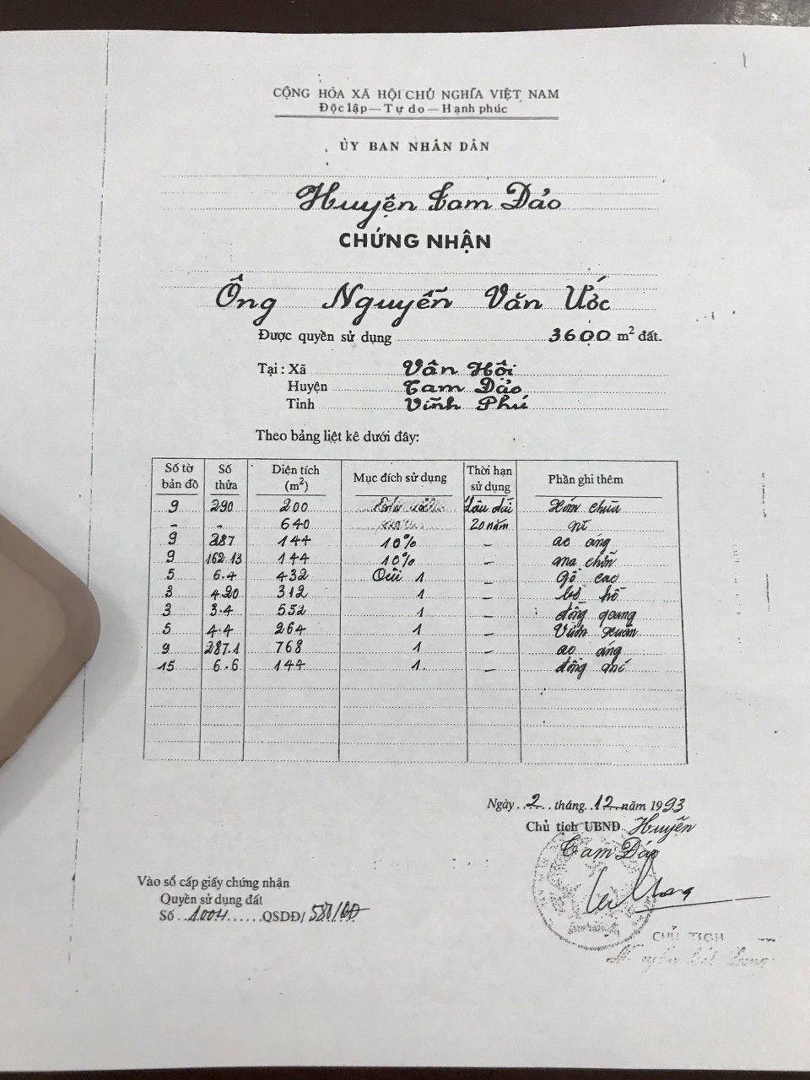 CỘNG HÒA XÃ HỘI CHỦ NGHĨA VIỆT NAM
Độc lập — Tự do — Hạnh phúc
ỦY BAN NHÂN DÂN
Huyện Tam Đảo
CHỨNG NHẬN
Ông Nguyễn Văn Ước
Được quyền sử dụng 3600 m² đất.
Tại : Xã Vân Hội
Huyện Tam Đảo
Tỉnh Vĩnh Phú
Theo bảng liệt kê dưới đây:
Số tờ bản đồ Số thửa Diện tích (m²) Mục đích sử dụng Thời hạn sử dụng Phần ghi thêm
9 290 200 Lâu dài Xóm chùa
- - 640 20 năm
9 287 144 10% - ao
9 162.13 144 10% -
5 6.4 432 1 - gò cao
3 420 312 1 -
3 3.4 552 1 - đồng quang
5 4.4 264 1 - Vườn xuân
9 287.1 768 1 - ao
15 6.6 144 1. - đồng
Ngày 2 tháng 12 năm 1993
Chủ tịch UBND Huyện
Tam Đảo
Vào sổ cấp giấy chứng nhận
Quyền sử dụng đất
Số 1004 QSDĐ/
CHỦ TỊCH